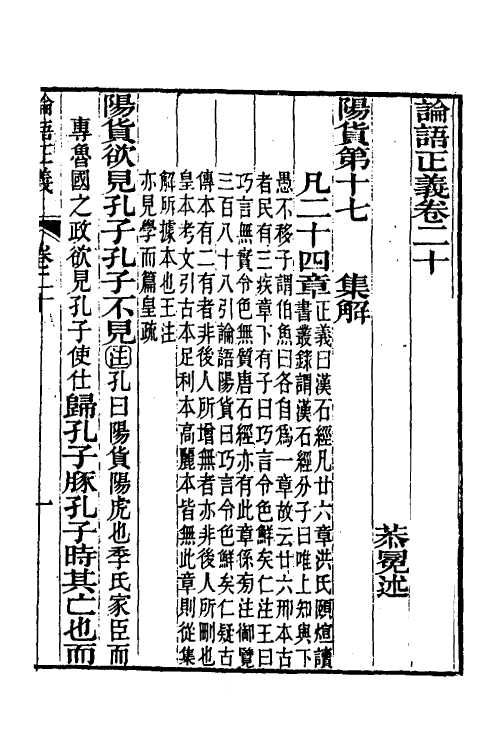 論語正義卷二十
恭冕述
陽貨第十七　集解
凡二十四章正義曰漢石經凡廿六章洪氏頤煊讀
書叢錄謂漢石經分子曰唯上知與下
愚不移子謂伯魚曰各自爲一章故云廿六邢本古
者民有三疾章下有子曰巧言令色鮮矣仁注王曰
巧言無實令色無質唐石經亦有此章係旁注御覽
三百八十八引論語陽貨曰巧言令色鮮矣仁疑古
傳本有二有者非後人所增無者亦非後人所刪也
皇本考文引古本足利本高麗本皆無此章則從集
解所據本也王注
亦見學而篇皇疏
陽貨欲見孔子孔子不見注孔曰陽貨陽虎也季氏家臣而
專魯國之政欲見孔子使仕歸孔子豚孔子時其亡也而
論語正義　卷二十　一